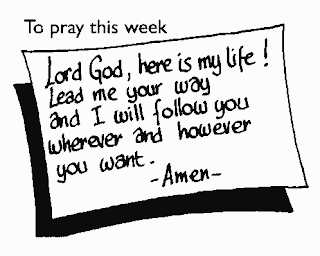 To pray this week
Lord God, here is my life!
Lead me your way
and I will follow you
wherever and however
you want.
-Amen-